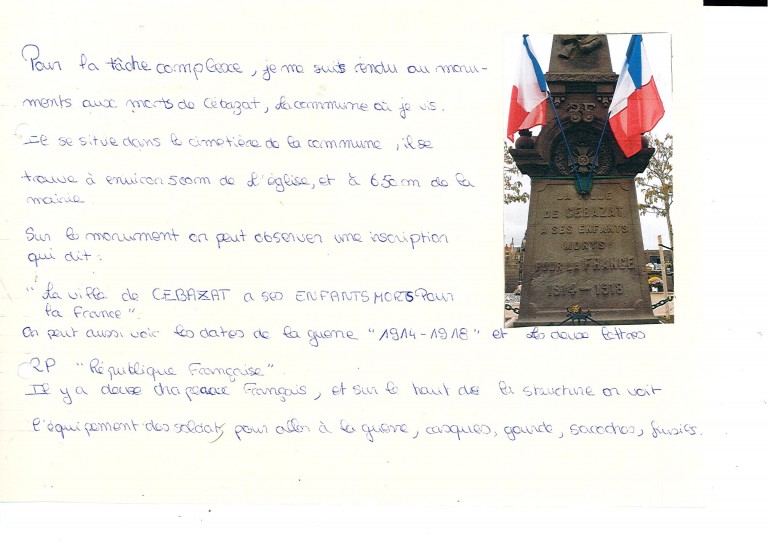 Pour la tâche complexe, je me suis rendu au monu-
ments aux morts de Cébazat, la commune où je vis.
Il se situe dans le cimetière de la commune, il se
trouve à environ 500m de l'église, et à 650m de la
mairie.
Sur le monument on peut observer une inscription
qui dit :
"La ville de CEBAZAT a ses ENFANTS MORTS Pour
la France".
On peut aussi voir les dates de la guerre "1914-1918" et les deux lettres
RP "République Française".
Il y a deux drapeaux Français, et sur le haut de la structure on voit
l'équipement des soldats, pour aller à la guerre, casques, gourde, sacoches, fusils.
LA VILLE
DE CEBAZAT
A SES ENFANTS
MORTS
POUR LA FRANCE
1914-1918